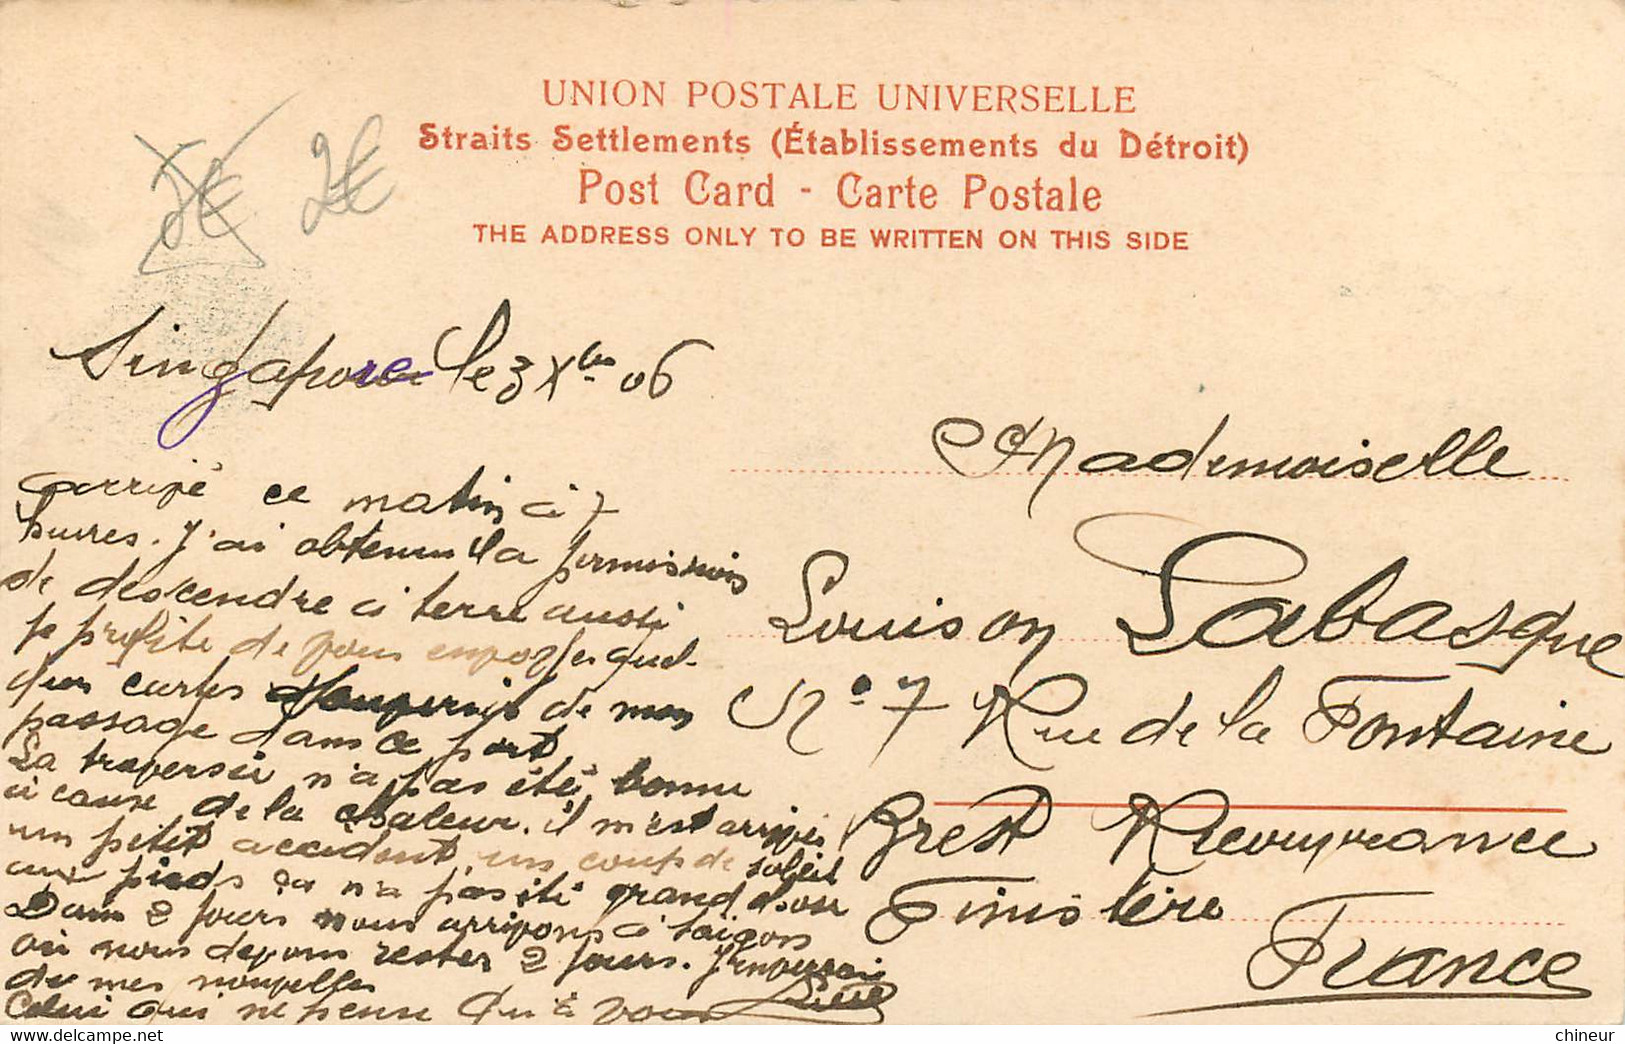 UNION POSTALE UNIVERSELLE
Straits Settlements (Établissements du Détroit)
Post Card - Carte Postale
THE ADDRESS ONLY TO BE WRITTEN ON THIS SIDE
2€
Singapore le 3 Xbre 06
arrivé ce matin à 7
heures. J'ai obtenu la permission
de descendre à terre aussi
je profite de pour envoyer quel-
ques cartes de mon
passage dans ce port
La traversée n'a pas été bonne
à cause de la chaleur. il m'est arrivé
un petit accident un coup de soleil
aux pieds ça n'a pas été grand chose
Dans 2 jours nous arrivons à Saigon
où nous devons rester 2 jours. J'enverrai
de mes nouvelles
Celui qui ne pense qu'à vous
Mademoiselle
Louison Labasque
No 7 Rue de la Fontaine
Brest Recouvrance
Finistère
France
chineur